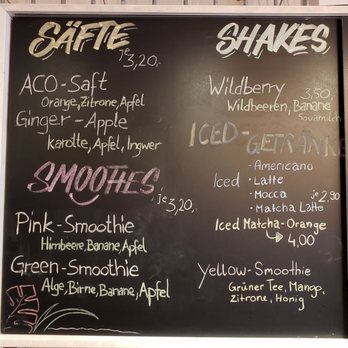 SÄFTE
je 3,20,-
ACO-Saft
Orange, Zitrone, Apfel
Ginger-Apple
Karotte, Apfel, Ingwer
SMOOTHIES
je 3,20,-
Pink-Smoothie
Himbeere, Banane, Apfel
Green-Smoothie
Alge, Birne, Banane, Apfel
SHAKES
Wildberry 3,50,-
Wildbeeren, Banane
ICED-GETRÄNKE
Iced
- Americano
- Latte
- Mocca je 2,90
- Matcha Latte
Iced Matcha-Orange
→ 4,00
Yellow-Smoothie
Grüner Tee, Mango,
Zitrone, Honig